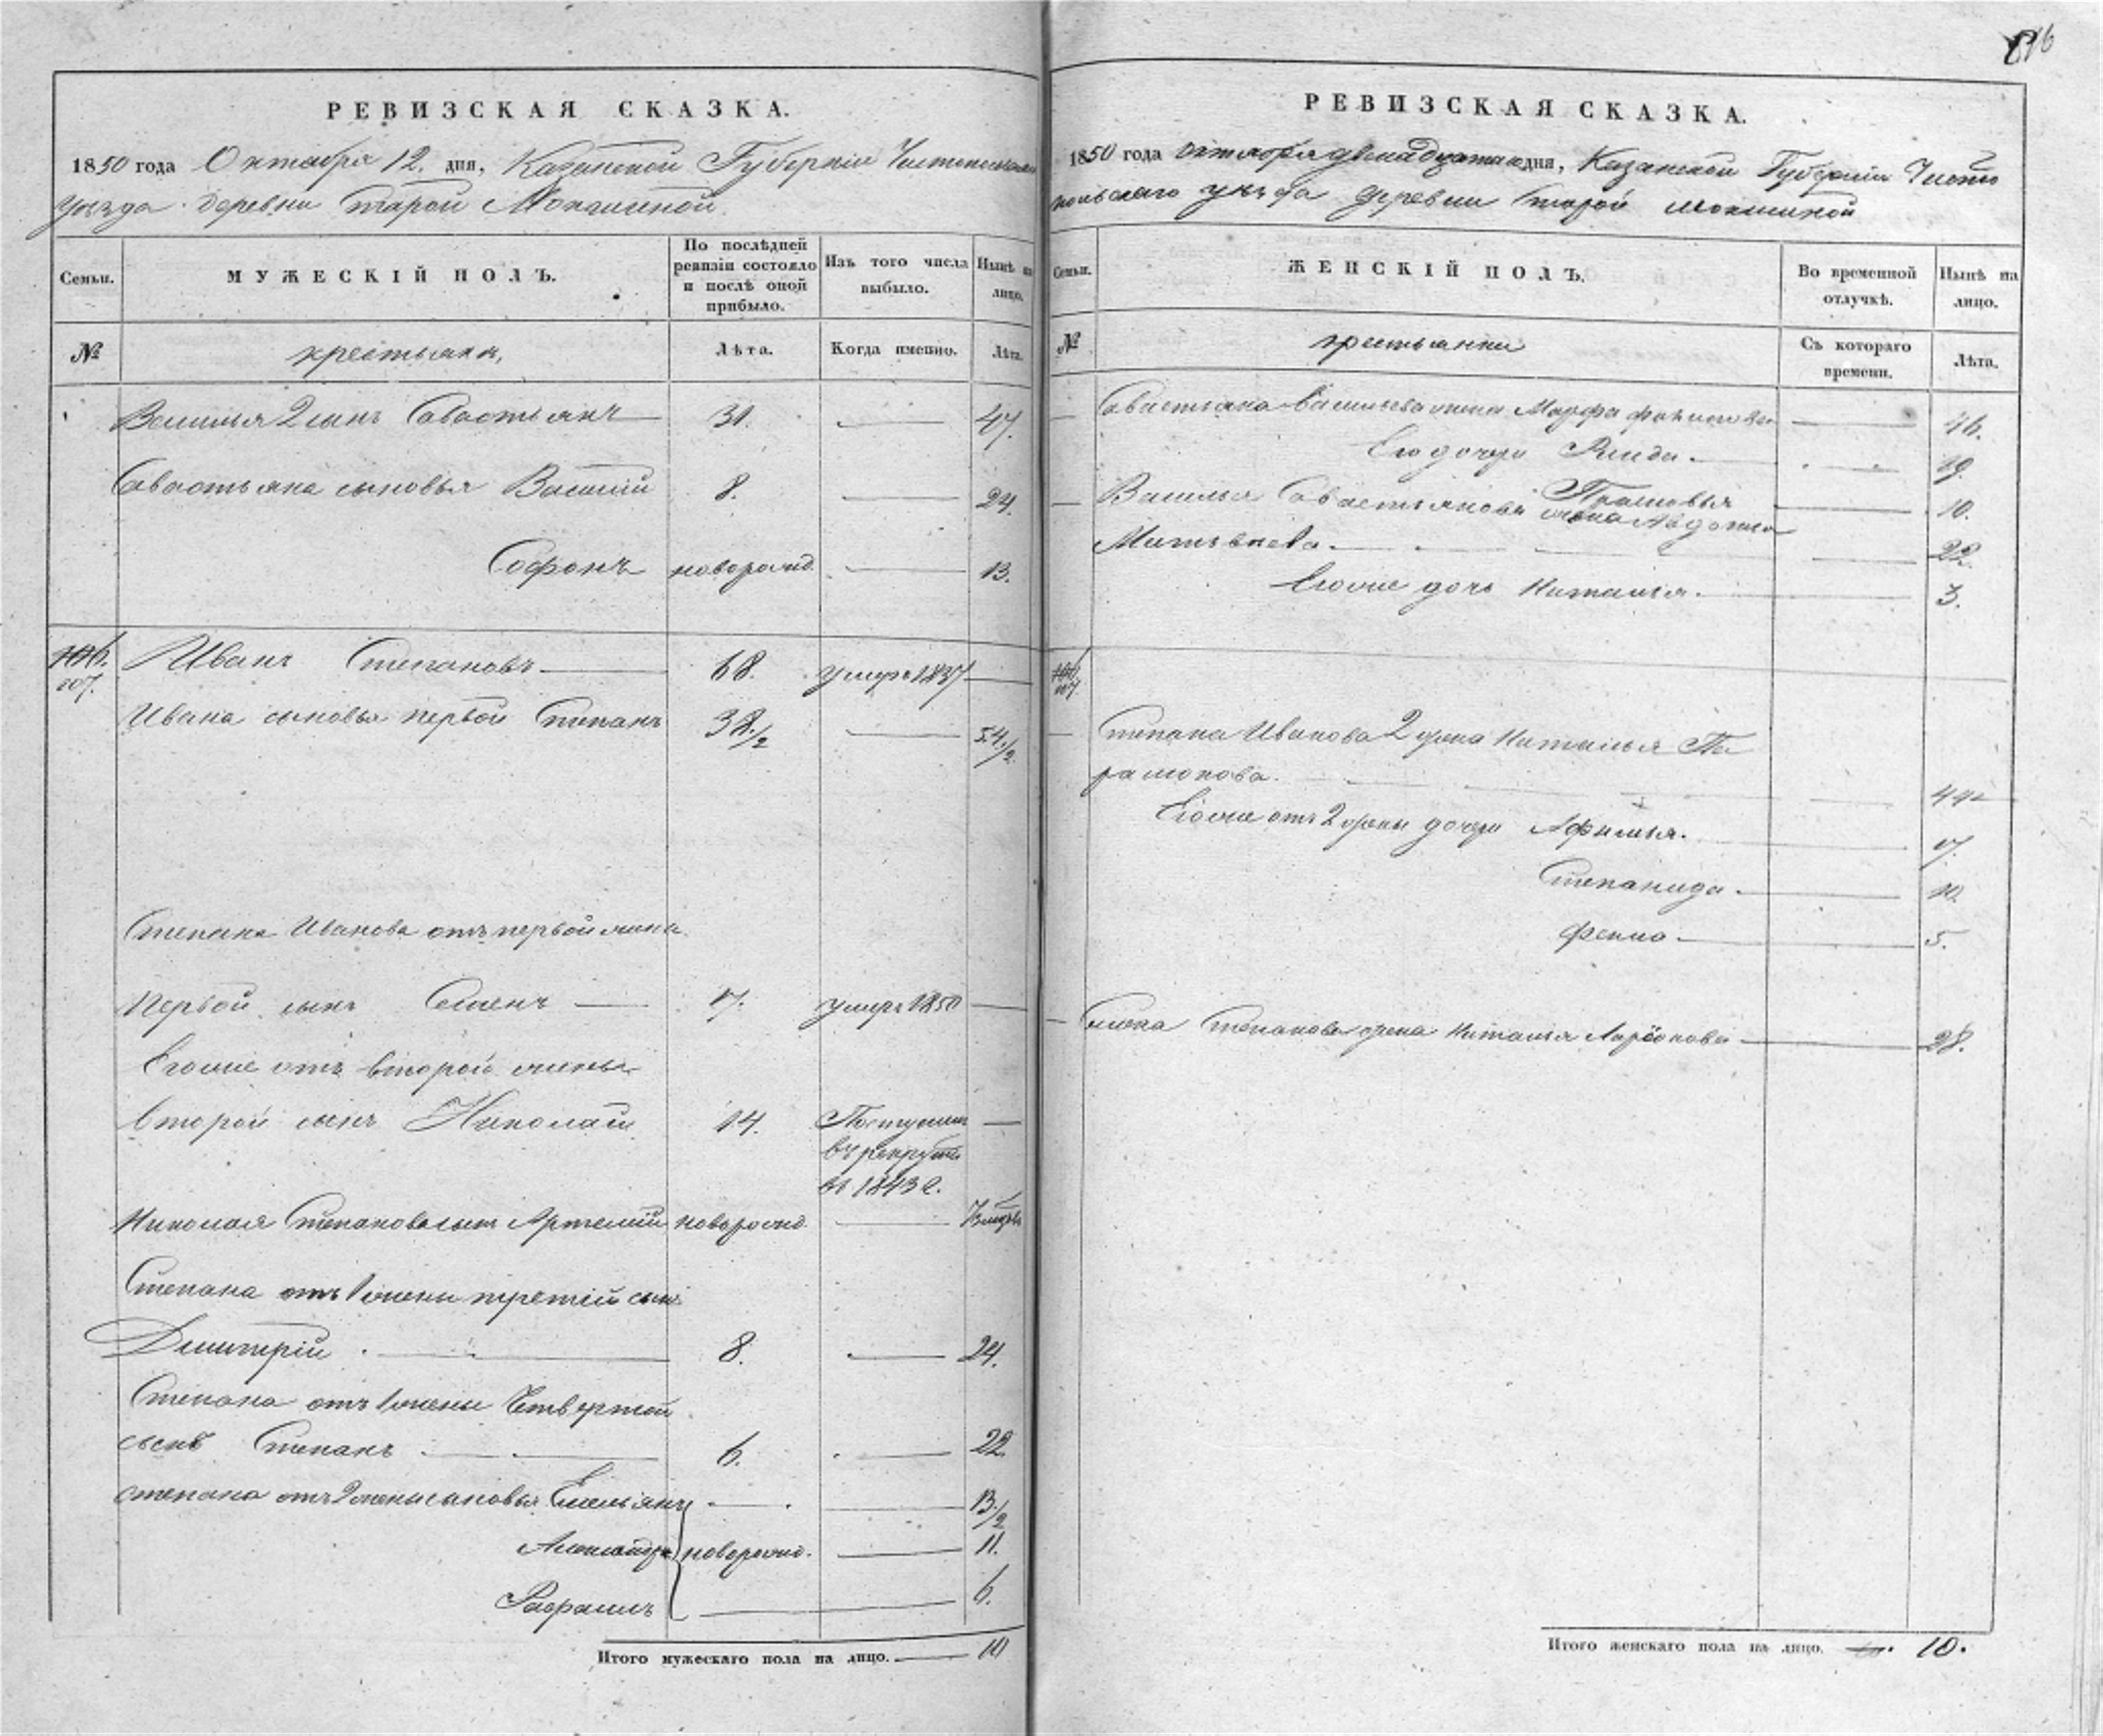 816
РЕВИЗСКАЯ СКАЗКА.
1850 года Октября 12. дня, Казанской Губернiи Чистопольскаго
уѣзда деревни Старой Мокшиной.
Семьи.
МУЖЕСКIЙ ПОЛЪ.
По послѣдней ревизiи состояло и послѣ оной прибыло.
Изъ того числа выбыло.
Нынѣ на лицо.
№
крестьяне,
Лѣта.
Когда именно.
Лѣта.
Василья 2 сынъ Савастьянъ 31. 47.
Савастьяна сыновья Василiй 8. 24.
Софонъ новорожд. 13.
106.
107.
Иванъ Степановъ 68. умеръ 1837
Ивана сыновья первой Степанъ 38 1/2 54 1/2
Степана Иванова отъ первой жены
Первой сынъ Семенъ 17. умеръ 1850
Егоже отъ второй жены
второй сынъ Николай 14. Поступилъ
въ рекруты
въ 1843 г.
Николая Степанова сынъ Артемiй новорожд.
Степана отъ 1 жены третiй сынъ
Дмитрiй 8. 24.
Степана отъ 1 жены Четвертой
сынъ Степанъ 6. 22.
Степана отъ 2 жены сыновья Емельянъ 13 1/2
Александръ новорожд. 11.
6.
Итого мужескаго пола на лицо. 10
РЕВИЗСКАЯ СКАЗКА.
1850 года октября двенадцатаго дня, Казанской Губернiи Чисто
польскаго уѣзда деревни Старой Мокшиной
Семьи.
ЖЕНСКIЙ ПОЛЪ.
Во временной отлучкѣ.
Нынѣ на лицо.
№
крестьянки
Съ котораго времени.
Лѣта.
Савастьяна Васильева жена Марфа 46.
Его дочери 19.
Прасковья 10.
Василья Савастьянова жена Авдотья
Матвѣева. 22.
Егоже дочь Наталья. 3.
106
107.
Степана Иванова 2 жена Наталья Па
рамонова. 44
Егоже отъ 2 жены дочери 17.
Степанида. 10.
Фекла 5.
Семена Степанова жена Наталья Ларiонова 28.
Итого женскаго пола на лицо. 10.